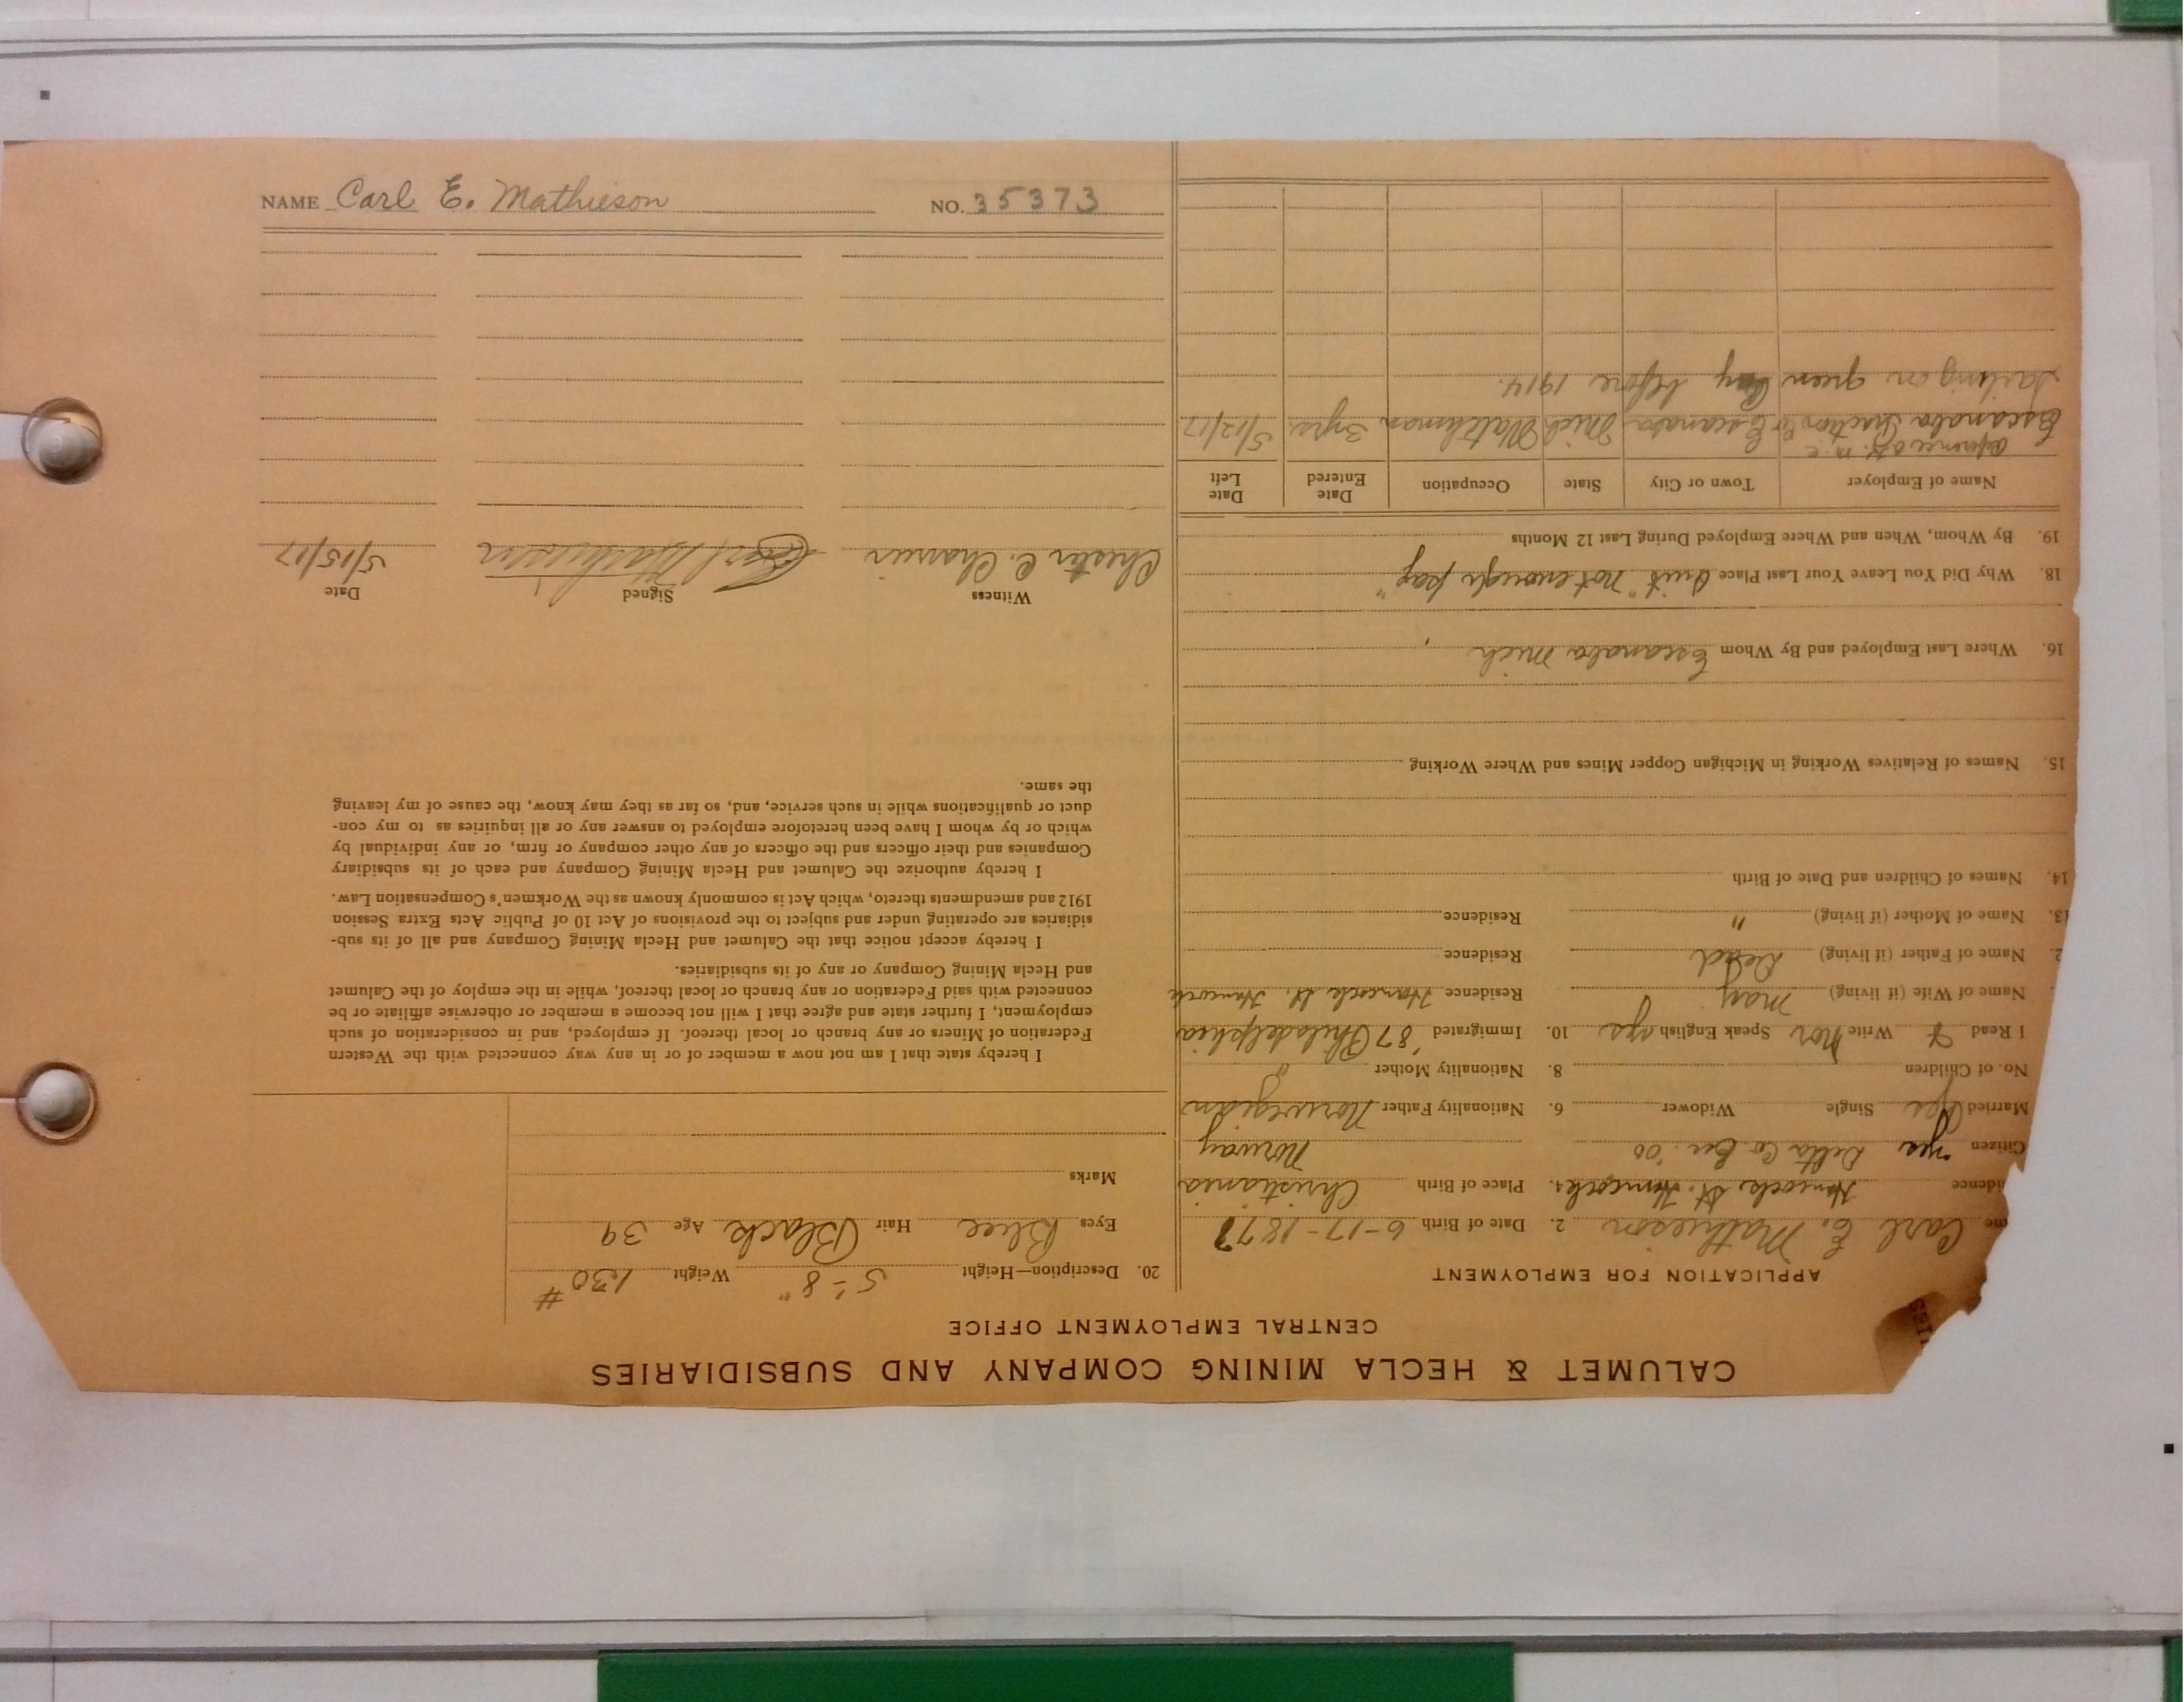 NAME Carl E. Mathieson NO. 35373
CALUMET & HECLA MINING COMPANY AND SUBSIDIARIES
CENTRAL EMPLOYMENT OFFICE
APPLICATION FOR EMPLOYMENT
me Carl E. Mathieson 2. Date of Birth 6-17-1877
idence Hancock St. Hancock 4. Place of Birth Christiania
Citizen yes Delta Co '00 Norway
Married yes Single Widower 6. Nationality Father Norwegian
No. of Children 8. Nationality Mother "
I Read & Write Nor Speak English yes 10. Immigrated '87 Philadelphia
Name of Wife (if living) May Residence Hancock St. Hancock
2. Name of Father (if living) Dead Residence
13. Name of Mother (if living) " Residence
14. Names of Children and Date of Birth
15. Names of Relatives Working in Michigan Copper Mines and Where Working
16. Where Last Employed and By Whom Escanaba Mich
18. Why Did You Leave Your Last Place Quit "not enough pay"
19. By Whom, When and Where Employed During Last 12 Months
Name of Employer Town or City State Occupation Date Entered Date Left
Escanaba Traction Co Escanaba Mich Watchman 3 yrs. 5/12/17
Sailing on green Bay before 1914.
20. Description—Height 5'-8" Weight 130 #
Eyes Blue Hair Black Age 39
Marks
I hereby state that I am not now a member of or in any way connected with the Western
Federation of Miners or any branch or local thereof. If employed, and in consideration of such
employment, I further state and agree that I will not become a member or otherwise affiliate or be
connected with said Federation or any branch or local thereof, while in the employ of the Calumet
and Hecla Mining Company or any of its subsidiaries.
I hereby accept notice that the Calumet and Hecla Mining Company and all of its sub-
sidiaries are operating under and subject to the provisions of Act 10 of Public Acts Extra Session
1912 and amendments thereto, which Act is commonly known as the Workmen's Compensation Law.
I hereby authorize the Calumet and Hecla Mining Company and each of its subsidiary
Companies and their officers and the officers of any other company or firm, or any individual by
which or by whom I have been heretofore employed to answer any or all inquiries as to my con-
duct or qualifications while in such service, and, so far as they may know, the cause of my leaving
the same.
Witness Signed Date
Chester C. Carl Mathieson 5/15/17